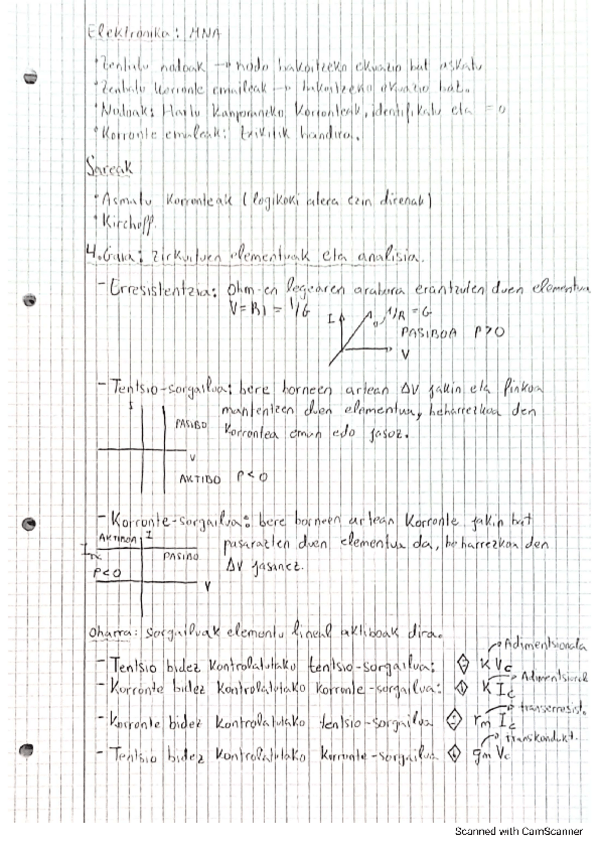 Elektronika: MNA
• Zenbatu nodoak → nodo bakoitzeko ekuazio bat askatu
• Zenbatu korronte emaileak → bakoitzeko ekuazio bat.
• Nodoak: Hartu kanporaneko korronteak, identifikatu eta = 0
• Korronte emaleak: txikitik handira.
Sareak
• Asmatu korronteak (logikoki atera ezin direnak)
• Kirchoff.
4.Gaia: zirkuituen elementuak eta analisia.
- Erresistentzia: Ohm-en legearen arabera erantzuten duen elementua
V=RI = I/G
I
1/R = G
PASIBOA P>0
V
- Tentsio-sorgailua: bere borneen artean ΔV jakin eta finkoa
mantentzen duen elementua, beharrezkoa den
korrontea eman edo jasoz.
I
PASIBO
V
AKTIBO P<0
- Korronte-sorgailua: bere borneen artean korronte jakin bat
pasarazten duen elementua da, beharrezkoa den
ΔV jasanez.
AKTIBOA
I
PASIBO
P<0
V
Oharra: sorgailuak elementu lineal aktiboak dira.
- Tentsio bidez kontrolatutako tentsio-sorgailua: K Vc Adimentsionala
- Korronte bidez kontrolatutako korronte-sorgailua: K Ic Adimentsional
- Korronte bidez kontrolatutako tentsio-sorgailua rm Ic transerresist.
- Tentsio bidez kontrolatutako korronte-sorgailua gm Vc transkondukt.
Scanned with CamScanner